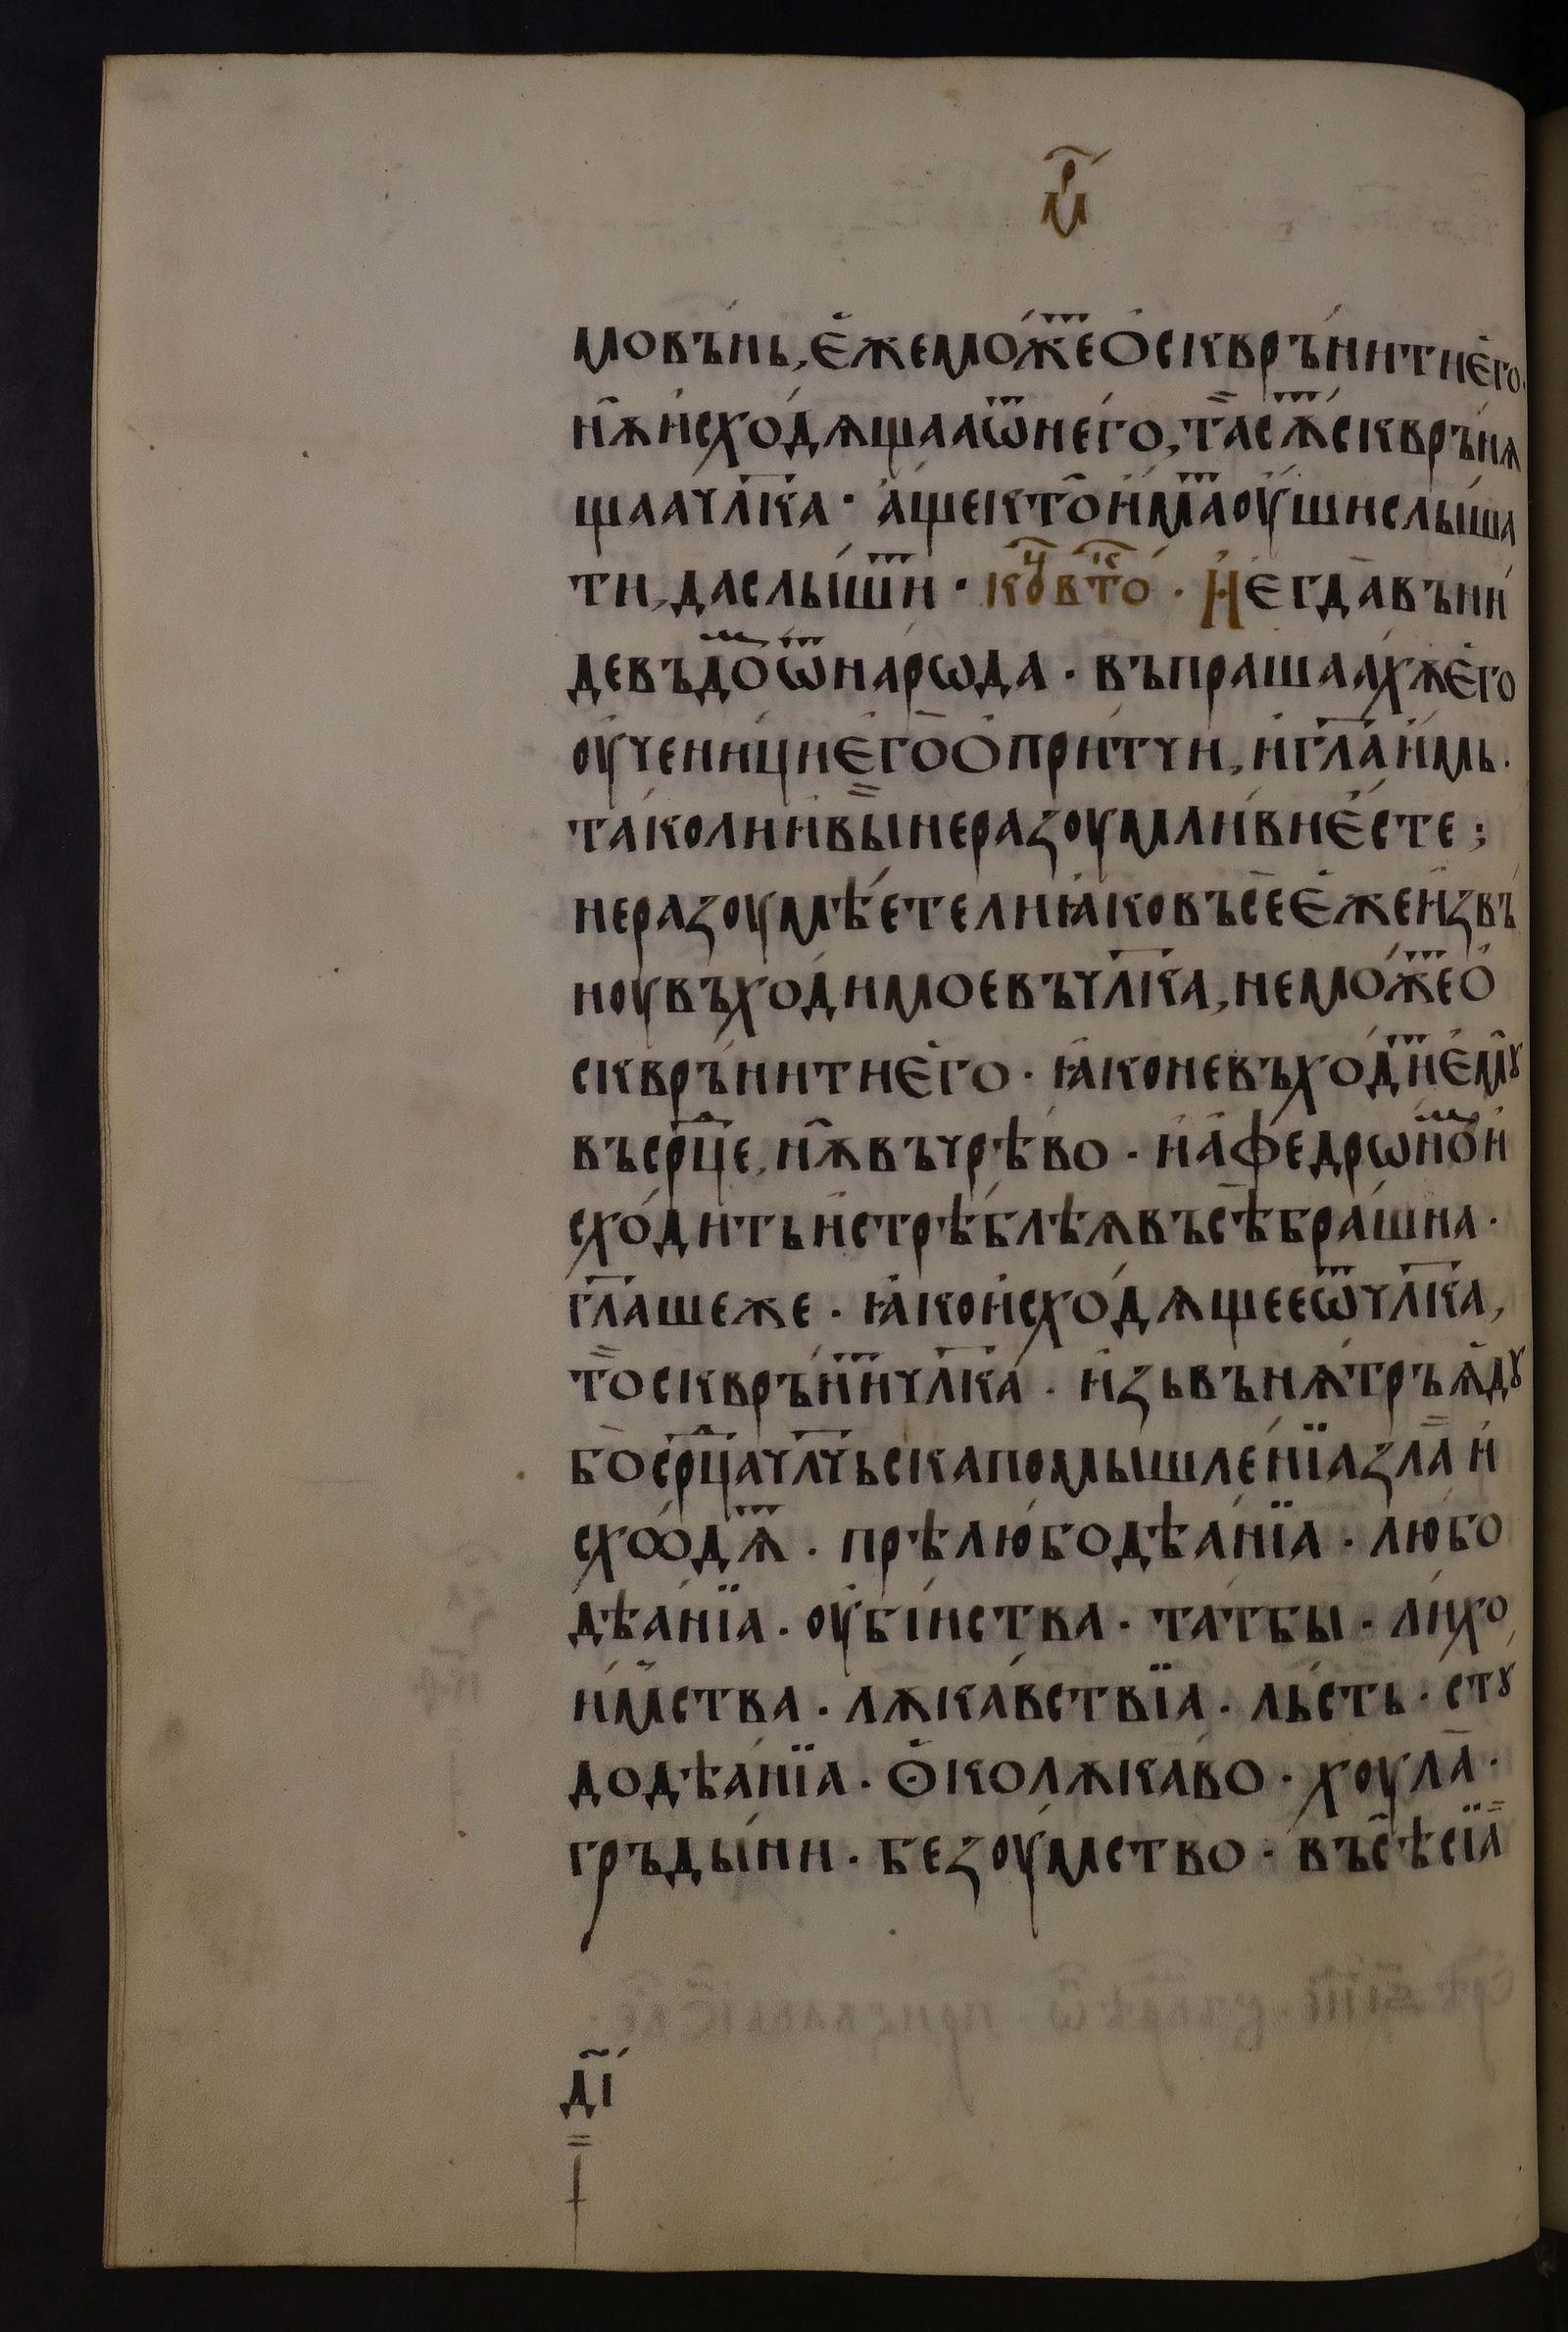 мр҃
мовъ́нь, є҆жемо́ж̾ео҆скврънитиє҆го.
нѫ҆и҆схо́дѧщааѿнего̀, та̏сѫ̾скврънѧ
щаачл҃ка · а҆щекто̀и҆ма̾оу҆шислы́ша
ти, даслы́ш̾и · коⷰ҇в҃то · И҆єгдⷶавъни́
девъдоⷨѿнарѡда · въпрашаахѫє҆го
оу҆чени́циє҆го̀о҆при́тчи, и҆гл҃аи҆мь.
та́коли̏и҆вы̀неразоумли́виє҆́сте ;
неразоумѣ́етелиꙗ҆ковъсеє҆жеи҆звъ
ноувъхо́димоевъчл҃ка, немо́ж̾ео҆
скврънитиє҆го · ꙗ҆коневъхо́дⷩ̾иє҆моу
въср҃це, нѫ҆въчрѣ́во · и҆а҆федрѡноⷨи҆
схо́дитьи҆стрѣблѣѧвъсѣ̀бра́шна ·
гл҃ашеже · ꙗ҆кои҆схо́дѧщееѿчл҃ка,
то̏скврън̾ичл҃ка̀ · и҆зьвънѫ́тръѧ҆дꙋ
бо̀ср҃цачл҃чьскапомышле́нїазла̏и҆
схꙮдѧ̾ · прѣлюбодѣа́нїа · любо
дѣа́нїа · оу҆бі́иства · та́тбы · лихо
и҆мⷭ҇тва · лѫка́вствїа · лье́сть · стꙋ
додѣа́нїа · ꙩ҆колѫка́во · хоула̀ ·
гръды́ни · безоу́мство · въсѣсїа̏
д҃і